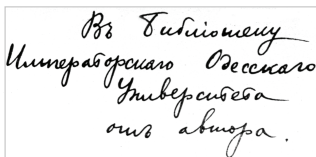 Въ Библіотеку
Императорскаго Одесскаго
Университета
отъ автора.